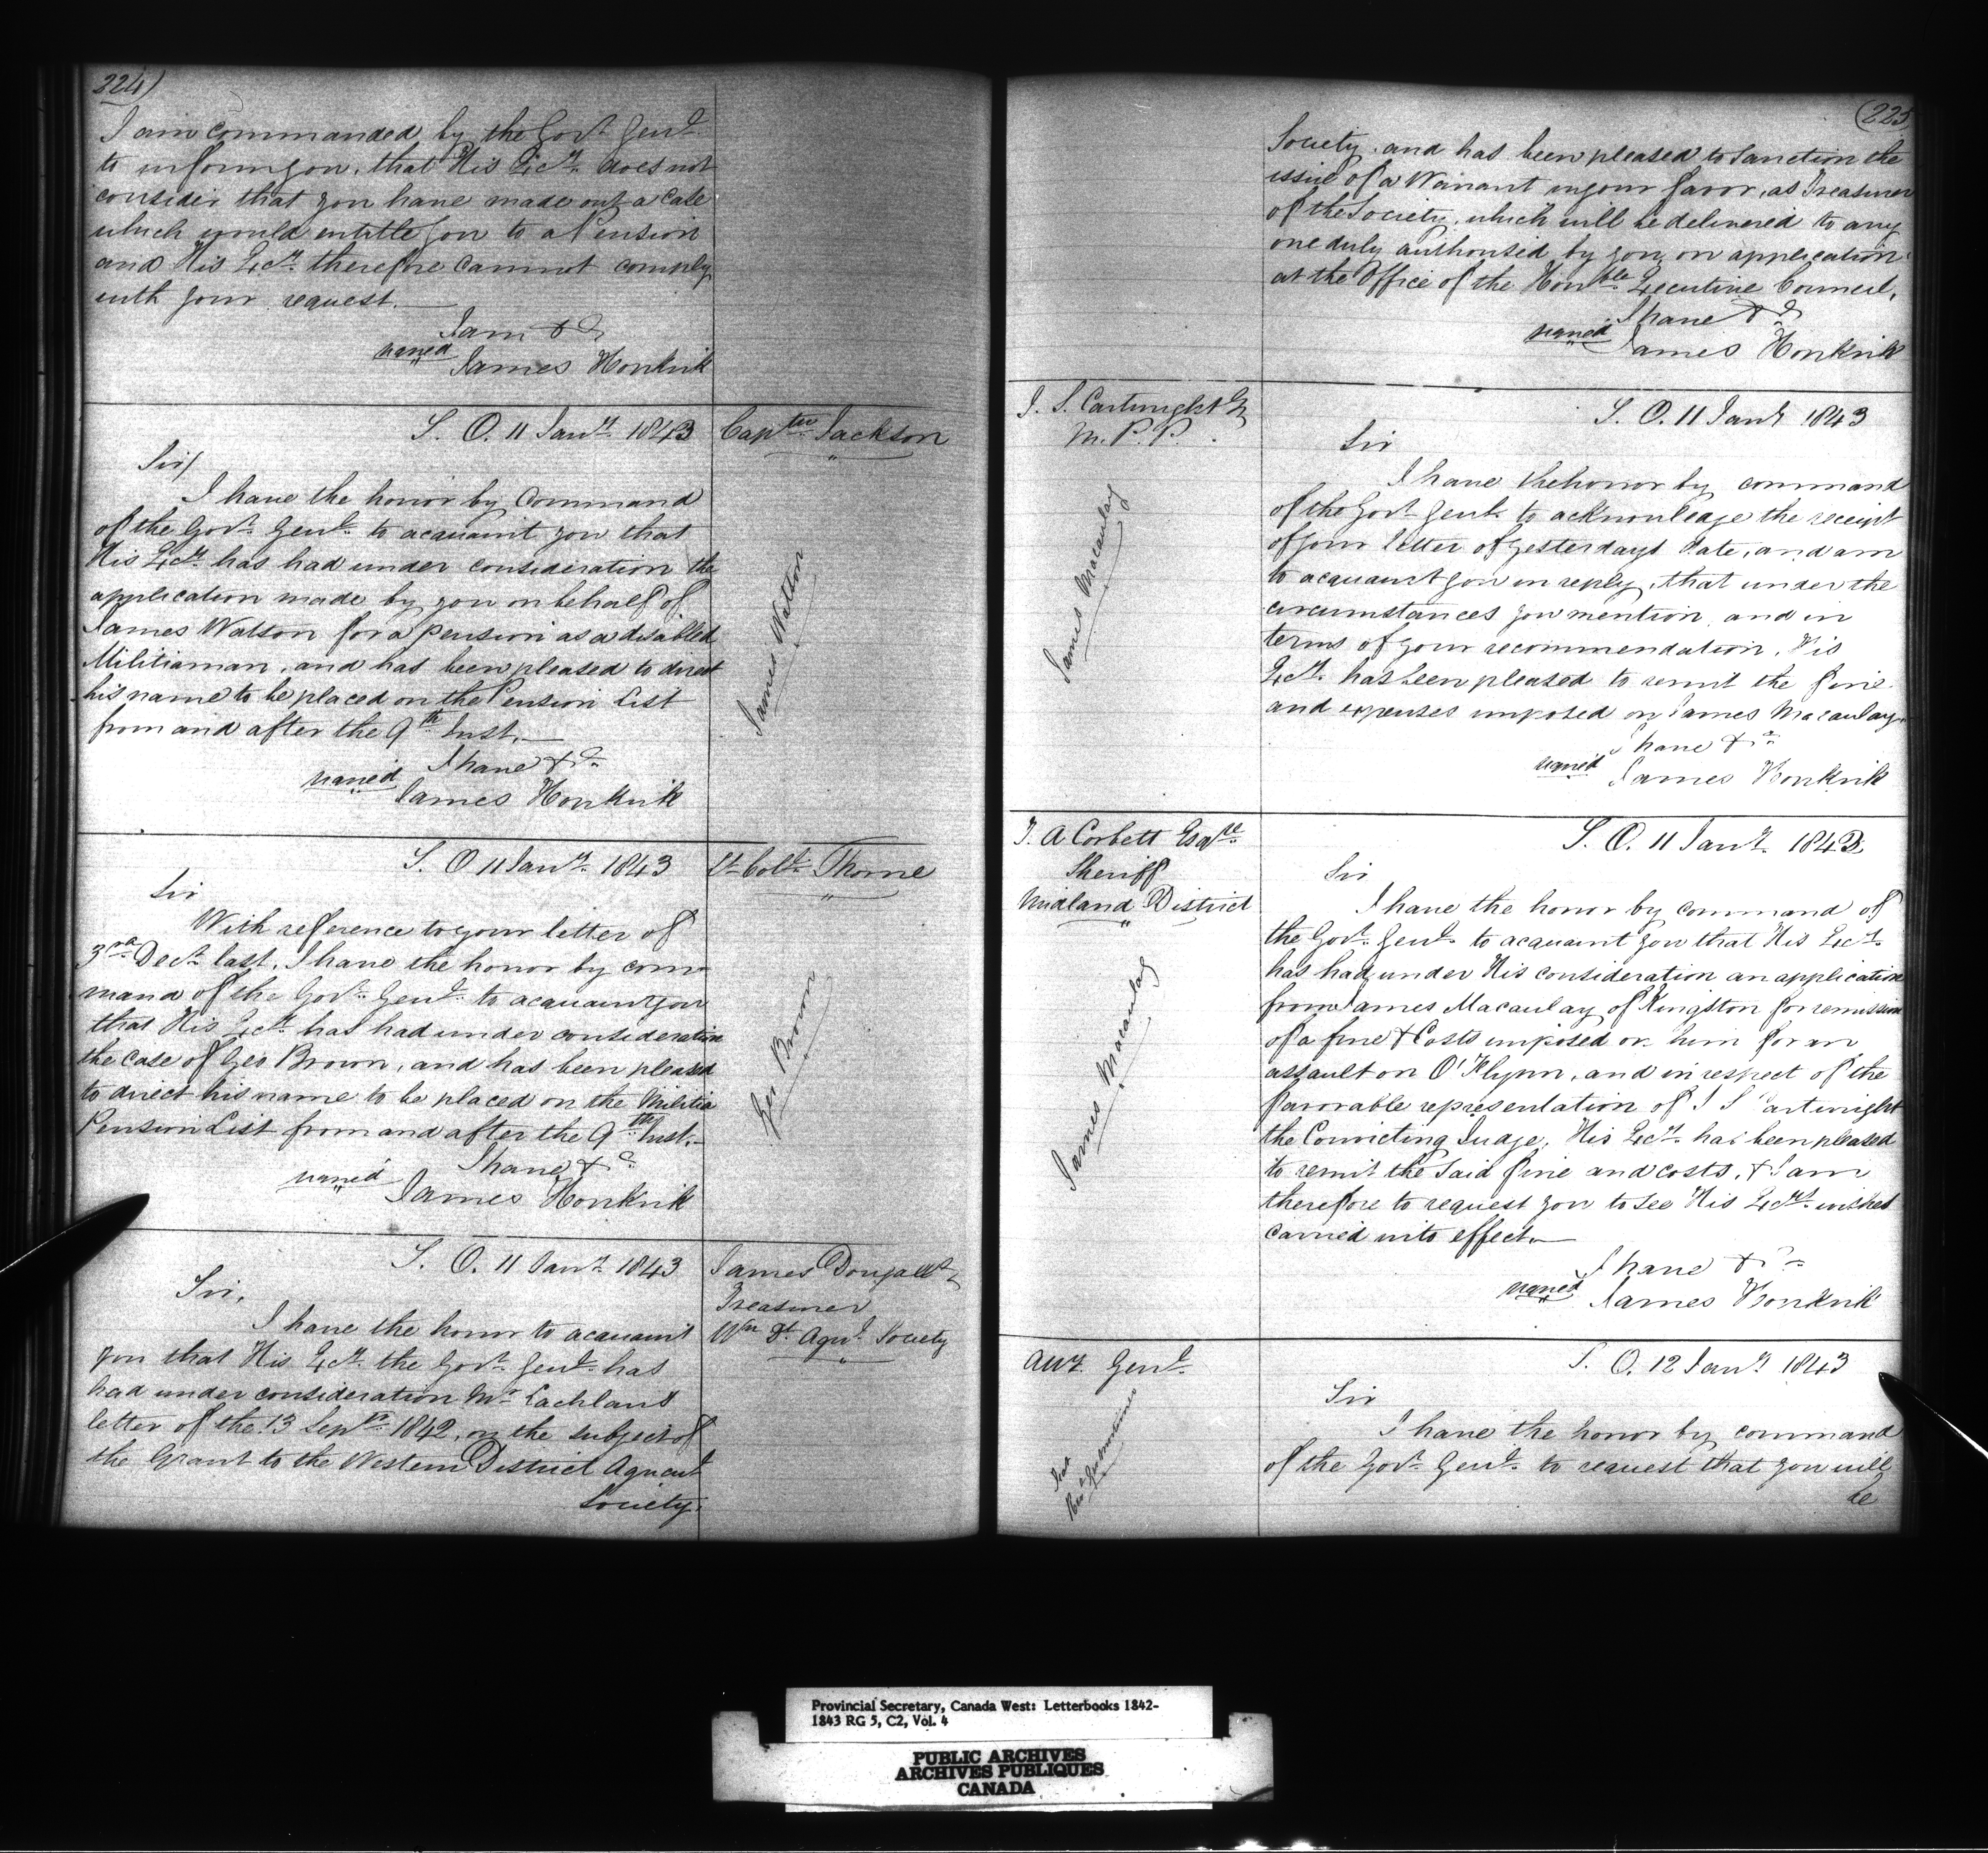 224)
I am commanded by the Govr Genl
to inform you, that His Excy does not
consider that you have made out a case
which would entitle you to a Pension
and His Excy therefore cannot comply
with your request.
I am &c
signed
James Hopkirk
S. O. 11 Jany 1843
Captn Jackson
Sir/
I have the honor by Command
of the Govr Genl to acquaint you that
His Excy has had under consideration the
application made by you on behalf of
James Watson for a pension as a disabled
Militiaman, and has been pleased to direct
his name to be placed on the Pension List
from and after the 9th Inst.
I have &c
signed
James Hopkirk
James Watson
S. O 11 Jany 1843
Lt Coll Thorne
Sir
With reference to your letter of
3rd Decr last, I have the honor by com
mand of the Govr Genl to acquaint you
that His Excy has had under consideration
the case of Geo Brown, and has been pleased
to direct his name to be placed on the Militia
Pension List from and after the 9th Inst.
I have &c
signed
James Hopkirk
Geo Brown
S. O. 11 Jany 1843
James Dougall
Treasurer
Wn Dt Agrl Society
Sir,
I have the honor to acquaint
you that His Excy the Govr Genl has
had under consideration Mr Lachlans
letter of the 13 Sepr 1842, on the subject of
the Grant to the Western District Agricult
Society.
(225
Society, and has been pleased to sanction the
issue of a Warrant in your favor, as Treasurer
of the Society, which will be delivered to any
one duly authorised by you, on application
at the Office of the Honble Executive Council.
I have &c
signed
James Hopkirk
J. S. Cartwright Esq
M. P. P.
S. O. 11 Jany 1843
Sir
I have the honor by command
of the Govr Genl to acknowledge the receipt
of your letter of yesterdays date, and am
to acquaint you in reply, that under the
circumstances you mention, and in
terms of your recommendation, His
Excy has been pleased to remit the fine
and expenses imposed on James Macaulay.
I have &c
signed
James Hopkirk
James Macaulay
T. A Corbett Esqre
Sheriff
Midland District
S. O. 11 Jany 1843
Sir
I have the honor by command of
the Govr Genl to acquaint you that His Excy
has had under His consideration an application
from James Macaulay of Kingston for remission
of a fine & Costs imposed on him for an
assault on O'Flynn, and in respect of the
favorable representation of J S Cartwright
the Convicting Judge, His Excy has been pleased
to remit the said fine and costs, & I am
therefore to request you to see His Excys wishes
carried into effect.
I have &c
signed
James Hopkirk
James Macaulay
Atty Genl
S. O. 12 Jany 1843
Sir
I have the honor by command
of the Govr Genl to request that you will
be
Provincial Secretary, Canada West: Letterbooks 1842-
1843 RG 5, C2, Vol. 4
PUBLIC ARCHIVES
ARCHIVES PUBLIQUES
CANADA